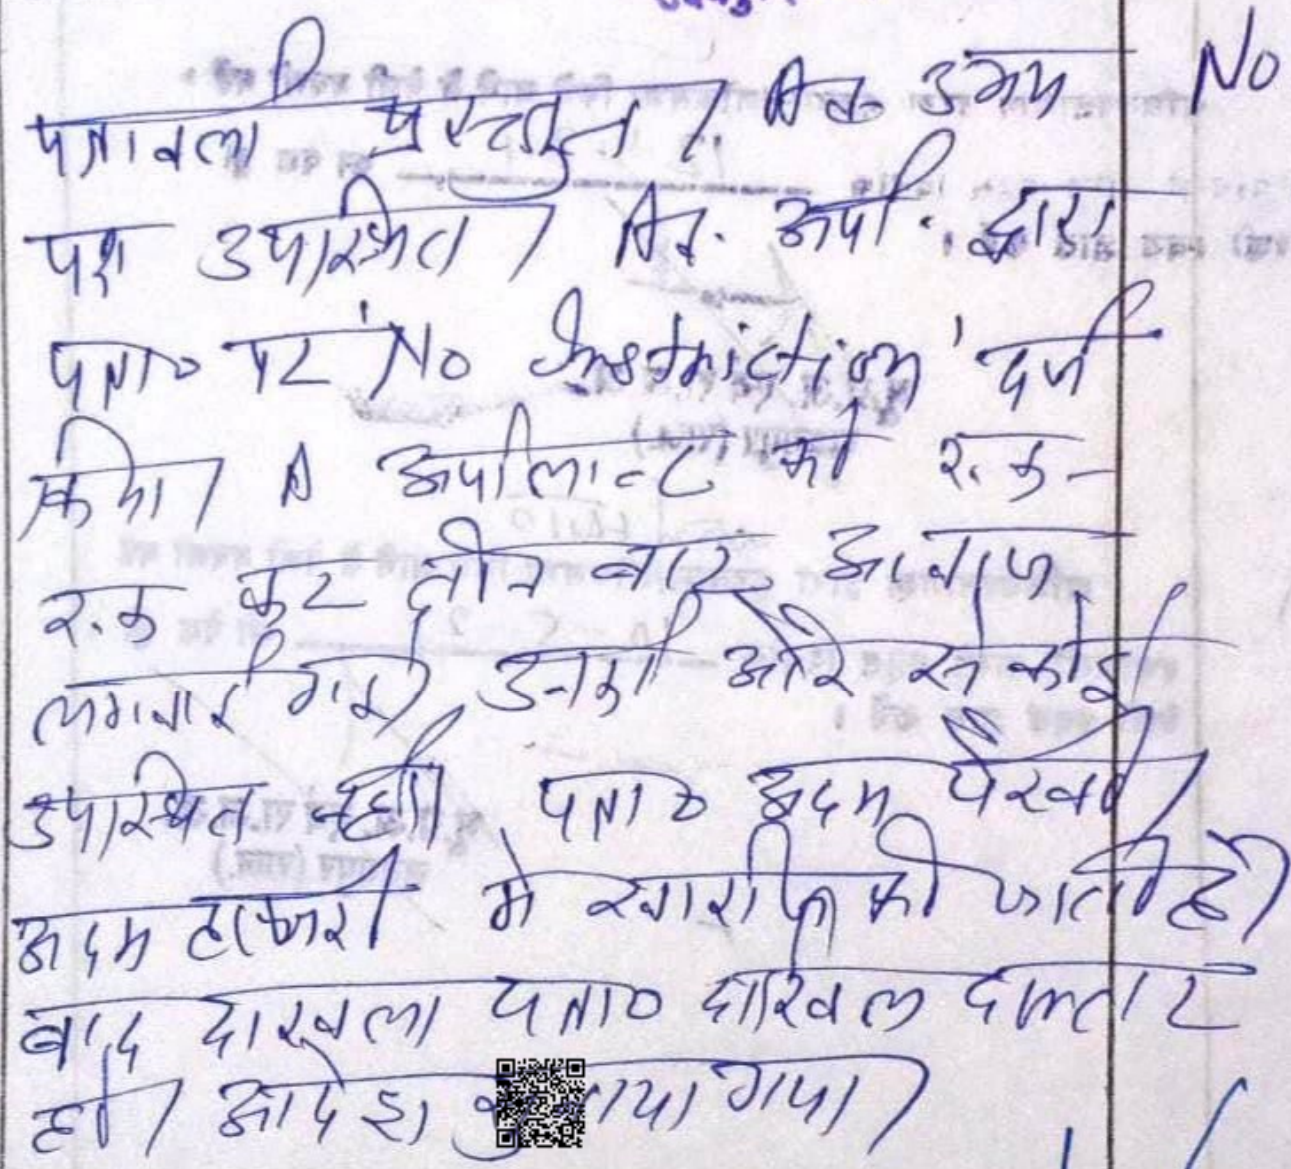 पत्रावली प्रस्तुत। Av. उभय No
पक्ष उपस्थित। Av. अपी. द्वारा
पत्रा० पर 'No Instruction' दर्ज
किया। अपीलान्ट को रू.क-
रू.क कर तीन बार आवाज
लगवाई गई, उनकी ओर से कोई
उपस्थित नहीं। पत्रा० अदम पैरवी।
अदम हाजरी में खारीज की जाती है।
बाद दाखला पत्रा० दाखिल दफ्तर
हो। आदेश गया।